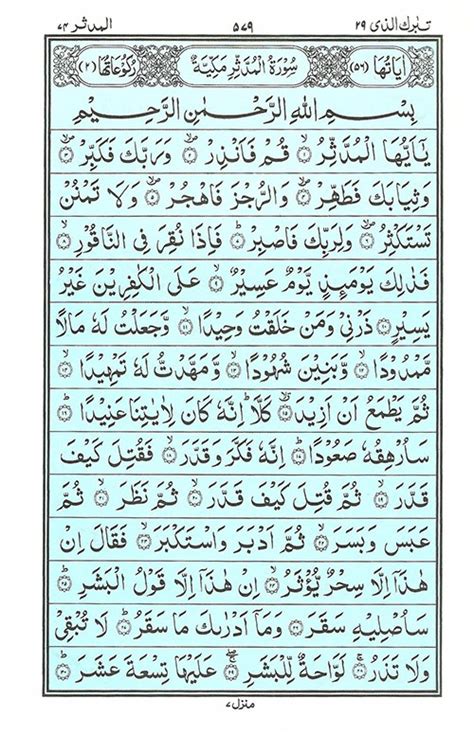 تبٰرك الذی ۲۹ ۵۷۹ المدثر ۷۴
اٰیَاتُهَا (۵۶) سُوْرَةُ الْمُدَّثِّرِ مَكِّیَّةٌ رُكُوْعَاتُهَا (۲)
بِسْمِ اللهِ الرَّحْمٰنِ الرَّحِیْمِ
یٰۤاَیُّهَا الْمُدَّثِّرُ ۱ قُمْ فَاَنْذِرْ ۲ وَرَبَّكَ فَكَبِّرْ ۳
وَثِیَابَكَ فَطَهِّرْ ۴ وَالرُّجْزَ فَاهْجُرْ ۵ وَلَا تَمْنُنْ
تَسْتَكْثِرُ ۶ وَلِرَبِّكَ فَاصْبِرْ ۷ فَاِذَا نُقِرَ فِی النَّاقُوْرِ ۸
فَذٰلِكَ یَوْمَىِٕذٍ یَّوْمٌ عَسِیْرٌ ۹ عَلَی الْكٰفِرِیْنَ غَیْرُ
یَسِیْرٍ ۱۰ ذَرْنِیْ وَمَنْ خَلَقْتُ وَحِیْدًا ۱۱ وَّجَعَلْتُ لَهٗ مَالًا
مَّمْدُوْدًا ۱۲ وَّبَنِیْنَ شُهُوْدًا ۱۳ وَّمَهَّدْتُّ لَهٗ تَمْهِیْدًا ۱۴
ثُمَّ یَطْمَعُ اَنْ اَزِیْدَ ۱۵ كَلَّا ؕ اِنَّهٗ كَانَ لِاٰیٰتِنَا عَنِیْدًا ۱۶
سَاُرْهِقُهٗ صَعُوْدًا ۱۷ اِنَّهٗ فَكَّرَ وَقَدَّرَ ۱۸ فَقُتِلَ كَیْفَ
قَدَّرَ ۱۹ ثُمَّ قُتِلَ كَیْفَ قَدَّرَ ۲۰ ثُمَّ نَظَرَ ۲۱ ثُمَّ
عَبَسَ وَبَسَرَ ۲۲ ثُمَّ اَدْبَرَ وَاسْتَكْبَرَ ۲۳ فَقَالَ اِنْ
هٰذَاۤ اِلَّا سِحْرٌ یُّؤْثَرُ ۲۴ اِنْ هٰذَاۤ اِلَّا قَوْلُ الْبَشَرِ ۲۵
سَاُصْلِیْهِ سَقَرَ ۲۶ وَمَاۤ اَدْرٰىكَ مَا سَقَرُ ۲۷ لَا تُبْقِیْ
وَلَا تَذَرُ ۲۸ لَوَّاحَةٌ لِّلْبَشَرِ ۲۹ عَلَیْهَا تِسْعَةَ عَشَرَ ۳۰
منزل ۷